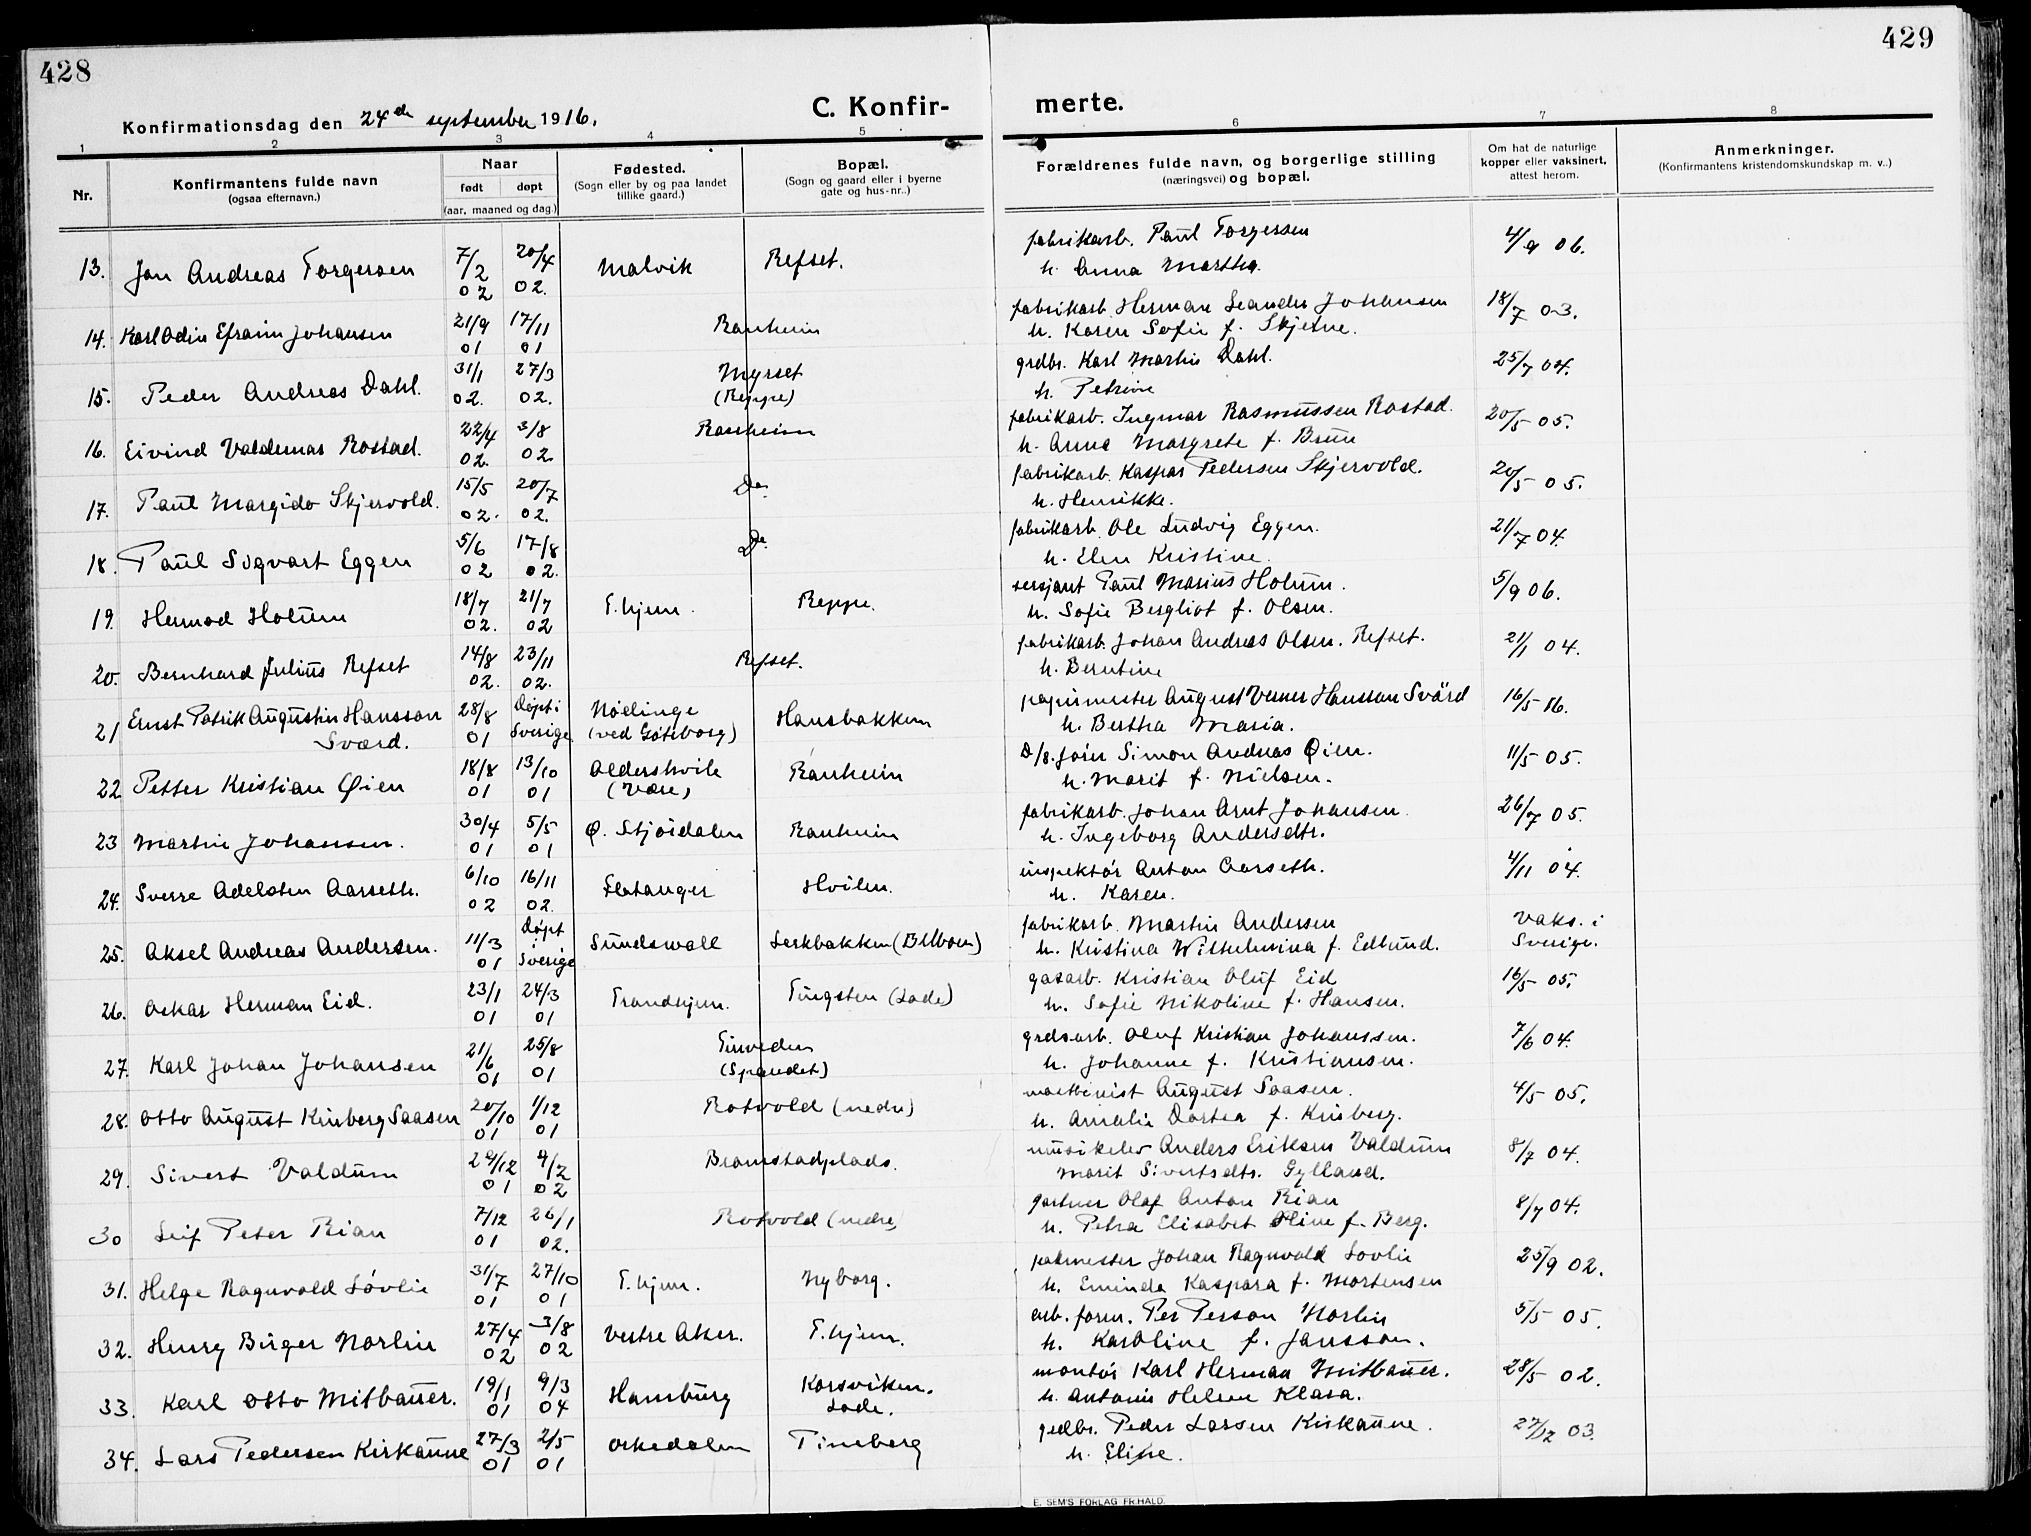 428
429
Konfirmationsdag den 24de september 1916.
C. Konfir-
merte.
1 2 3 4 5 6 7 8
Nr.
Konfirmantens fulde navn
(ogsaa efternavn.)
Naar
født døpt
(aar, maaned og dag.)
Fødested.
(Sogn eller by og paa landet
tillike gaard.)
Bopæl.
(Sogn og gaard eller i byerne
gate og hus-nr..)
Forældrenes fulde navn, og borgerlige stilling
(næringsvei) og bopæl.
Om hat de naturlige
kopper eller vaksinert,
attest herom.
Anmerkninger.
(Konfirmantens kristendomskundskap m. v..)
13. Jon Andreas Torgersen 7/2 02 20/4 02. Malvik Refset. fabrikarb. Paul Torgersen 4/9 06.
h. Anna Martha.
14. Karl Odin Efraim Johansen 21/9 01 17/11 01 Ranheim fabrikarb. Herman Leander Johansen 18/7 03.
h. Karen Sofie f. Skjetne.
15. Peder Andreas Dahl. 31/1 02. 27/3 02. Myrset (Reppe) grdbr. Karl Martin Dahl. 25/7 04.
h. Petrine
16. Eivind Valdemar Rostad. 22/4 02. 3/8 02 Ranheim fabrikarb. Ingmar Rasmussen Rostad. 20/5 05.
h. Anna Margrete f. Bruun
17. Paul Margido Skjervold. 15/5 02. 20/7 02. Do. fabrikarb. Kaspar Pedersen Skjervold. 20/5 05.
h. Henrikke.
18. Paul Sigvart Eggen 5/6 02 17/8 02. Do. fabrikarb. Ole Ludvig Eggen. 21/7 04.
h. Elen Kristine.
19. Hermod Holum 18/7 02. 21/7 02 T.hjem. Reppe. sersjant Paul Marius Holum. 5/9 06.
h. Sofie Bergliot f. Olsen.
20. Bernhard Julius Refset 14/8 02. 23/11 02. Refset. fabrikarb. Johan Andreas Olsen. Refset. 21/1 04.
h. Berntine
21 Ernst Patrik Augustin Hansson 28/8 01 Døpt i Sverige. Nödinge Hansbakken papirmester August Verner Hansson Svärd 16/5 16.
Sværd. (ved Gøteborg) h. Bertha Maria.
22 Petter Kristian Øien 18/8 01 13/10 01 Alderslvile (Være) Ranheim D/s. fører Simon Andreas Øien. 11/5 05.
h. Marit f. Nielsen.
23 Martin Johansen. 30/4 01 5/5 01 Ø. Stjørdalen Ranheim fabrikarb. Johan Arnt Johansen. 26/7 05.
h. Ingeborg Andersdtr.
24. Sverre Adelsten Aarseth. 6/10 02 16/11 02. Flatanger Hvilen. inspektør Anton Aarseth. 4/11 04.
h. Karen.
25. Aksel Andreas Andersen. 11/3 01 Døpt i Sverige Sundswall Lerkbakken (Belbuan) fabrikarb. Martin Andersen vaks. i Sverige.
h. Kristina Wilhelmina f. Edlund.
26. Oskar Herman Eid. 23/1 01 24/3 01 Trondhjem. Tingsten (Lade) gasarb. Kristian Oluf Eid 16/5 05.
h. Sofie Nikoline f. Hansen.
27. Karl Johan Johansen 21/6 01 25/8 01 (Spandet) grdsarb. Oluf Kristian Johanssen. 7/6 04.
h. Johanne f. Kristiansen.
28. Otto August Krinberg Saasen 20/10 01 1/12 01 Rotvold (nedre) maskinist August Saasen. 4/5 05.
h. Amalie Dortea f. Krinberg.
29. Sivert Valdum 29/12 01 9/2 02 Bromstadplads. musikelev Anders Eriksen Valdum 8/7 04.
Marit Sivertsdtr. Gylland.
30 Leif Peter Rian 7/12 01 26/1 02. Rotvold (nedre) gartner Olaf Anton Rian 8/7 04.
h. Petra Elisabet Oline f. Berg.
31. Helge Ragnvald Løvlie 31/7 01 27/10 01 T.hjem. Nyborg. pakmester Johan Ragnvald Lovlie 25/9 02.
h. Eminda Kaspara f. Mortensen
32. Henry Birger Norlin 27/4 02 3/8 02 Vestre Aker. T.hjem. arb. form. Per Person Norlin 5/5 05.
h. Karoline f. Jansson.
33. Karl Otto Mitbauer. 19/1 01 9/3 04 Hamburg Korsviken. Lade. montør Karl Herman Mitbauer. 28/5 02.
h. Antonie Helene Klara.
34. Lars Pedersen Kirkaune 27/3 01 2/5 01 Orkedalen Tineberg gedbr. Peder Larsen Kirkaune. 27/12 03.
h. Eline.
E. SEM'S FORLAG FR.HALD.